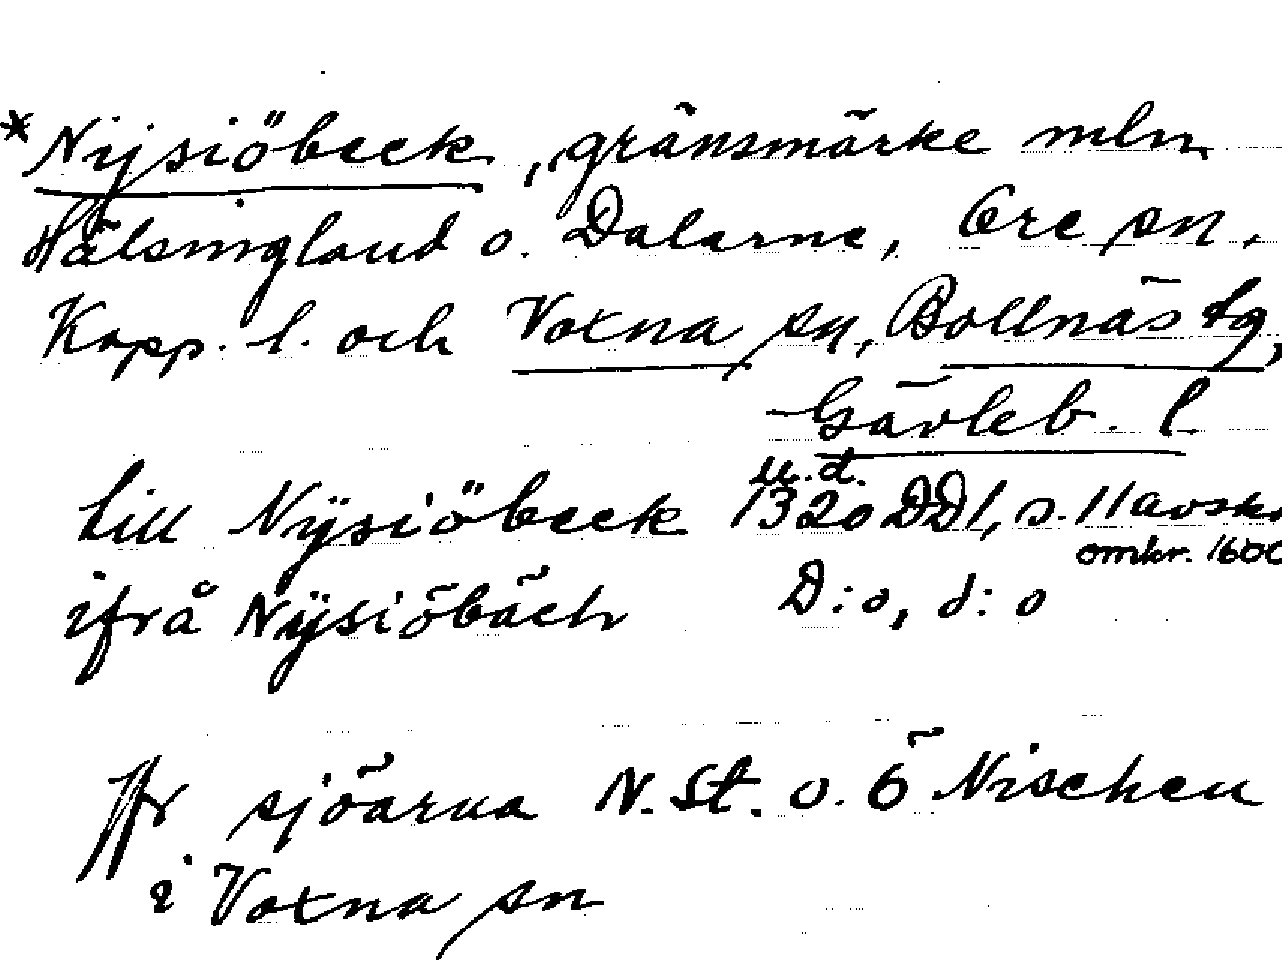 *Nÿsiöbeck, gränsmärke mln
Hälsingland o. Dalarne, Ore sn,
Kopp. l. och Voxna sn, Bollnäs tg,
Gävleb. l.
till Nÿsiöbeck u.d. 1320 DD1, s. 11 avskr.
omkr. 1600
ifrå Nÿsiöbäch D:o, d:o
Jfr sjöarna N. St. o. Ö Nischen
i Voxna sn